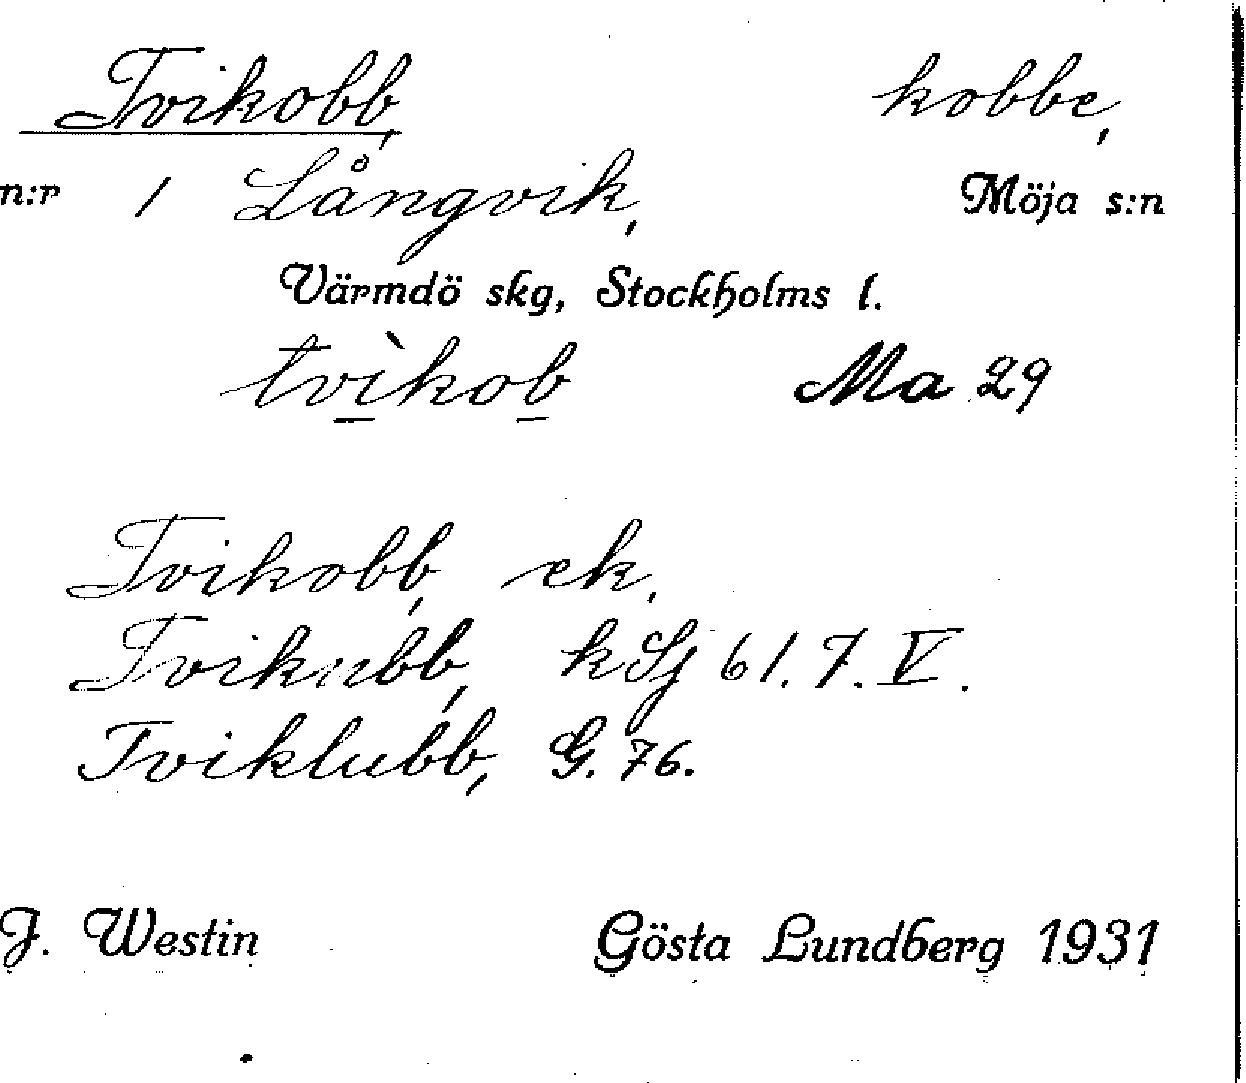 Tvikobb, kobbe,
n:r 1 Långvik, Möja s:n
Värmdö skg, Stockholms l.
tvìkob Ma 29
Tvikobb, ek.
Tvikubb, kSj 61.7.V.
Tviklubb, G. 76.
J. Westin Gösta Lundberg 1931